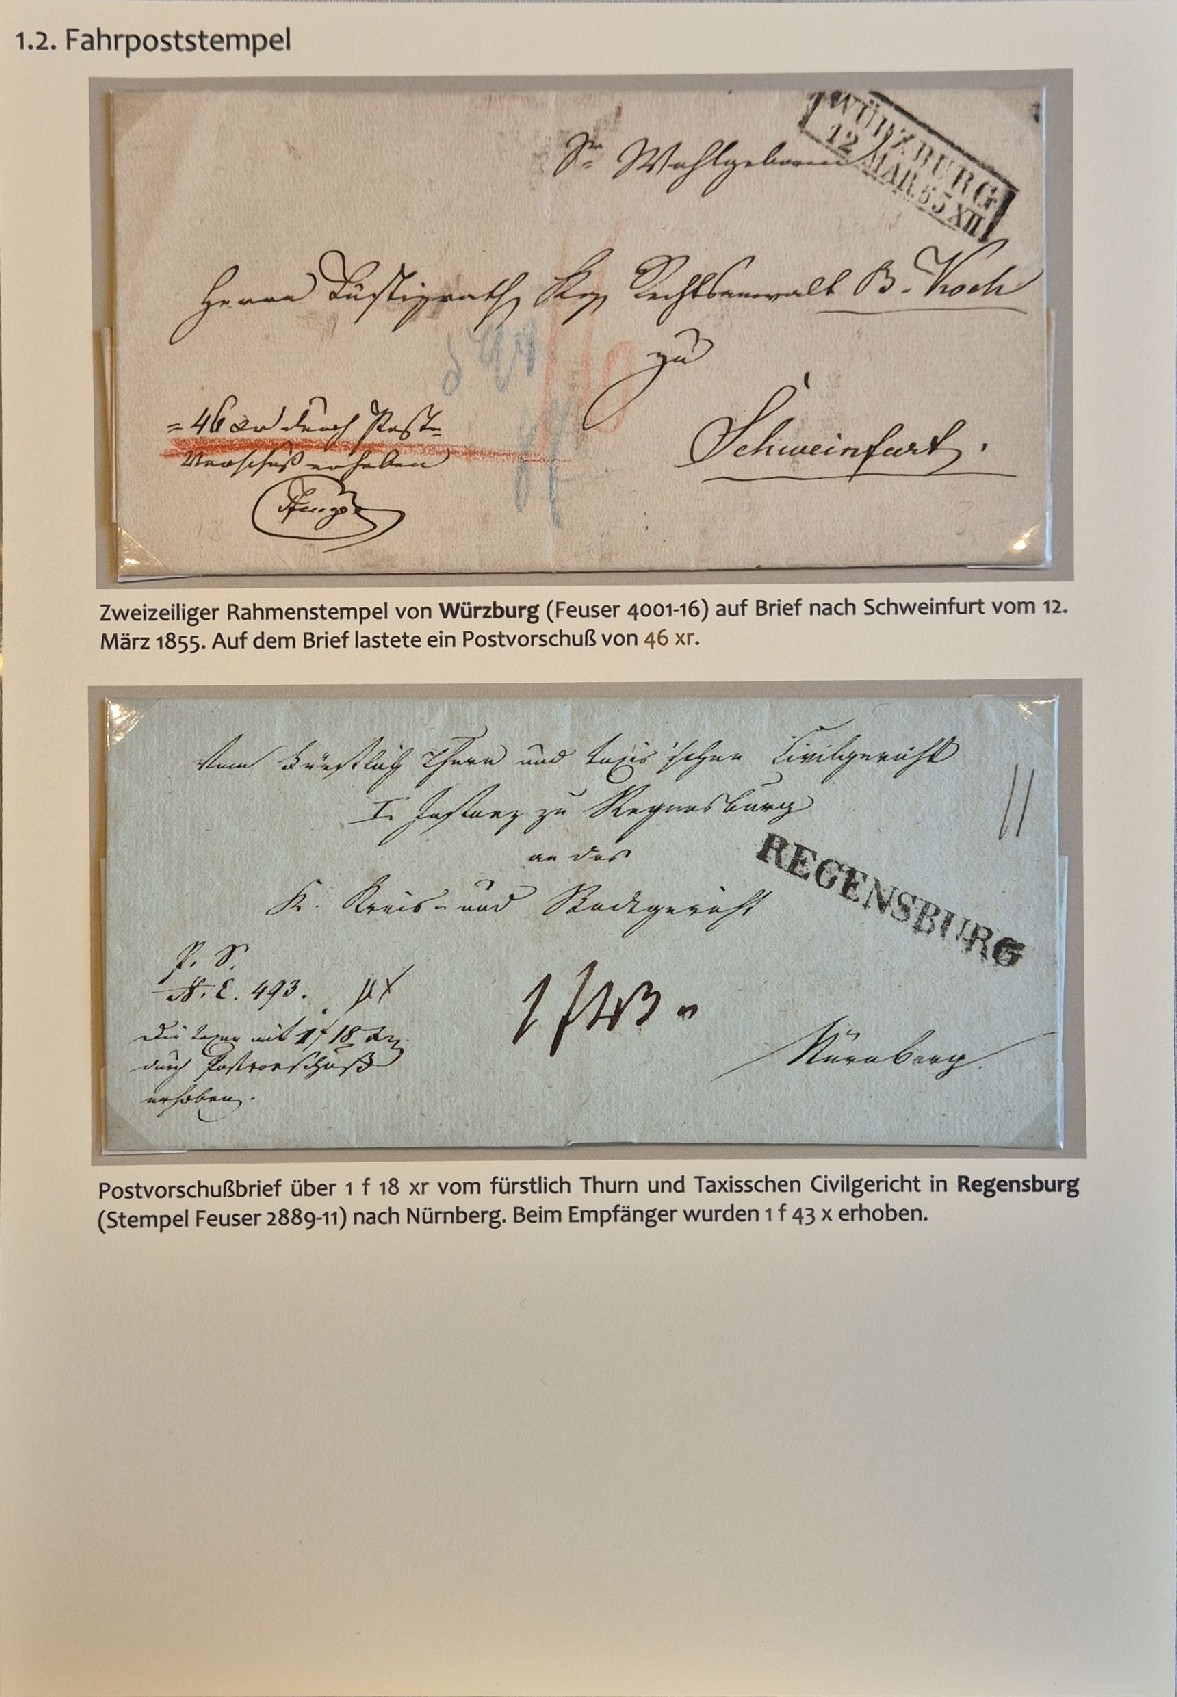 1.2. Fahrpoststempel
WÜRZBURG
12 MAR. 55 XII
Sr Wohlgeboren
Herrn Justizrath, Kgl. Rechtsanwalt B. Koch
zu
Schweinfurt.
=46 xr durch Post=
Vorschuß erheben
Zweizeiliger Rahmenstempel von Würzburg (Feuser 4001-16) auf Brief nach Schweinfurt vom 12.
März 1855. Auf dem Brief lastete ein Postvorschuß von 46 xr.
Vom Fürstlich Thurn und Taxis'schen Civilgericht
I. Instanz zu Regensburg
an das
K. Kreis- und Stadtgericht
REGENSBURG
P. S.
N. E. 493.
Die Taxen mit 1 f 18 xr
durch Postvorschuß
erhoben.
1 f 43
Nürnberg.
Postvorschußbrief über 1 f 18 xr vom fürstlich Thurn und Taxisschen Civilgericht in Regensburg
(Stempel Feuser 2889-11) nach Nürnberg. Beim Empfänger wurden 1 f 43 x erhoben.